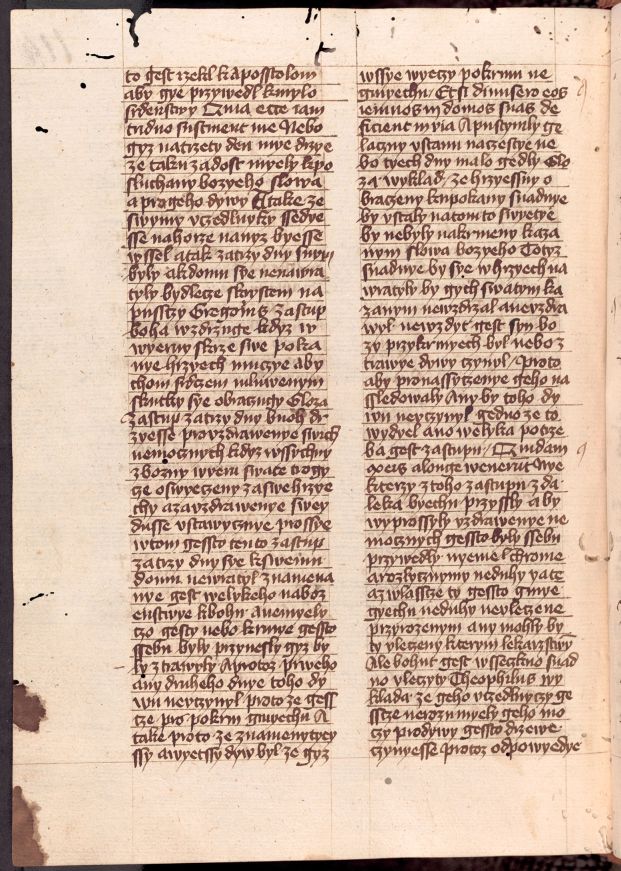 to gest rzekl kaposstolom
aby gye przywedl kmylo
srdenstwy Quia ecce iam
triduo sustinent me Nebo
gyz natrzety den mye drzye
ze taku zadost myely kpo
sluchany bozyeho slowa
a progeho dywy A take ze
swymy vczedlnyky ssedye
sse nahorze nanyz byesse
wssel atak zatrzy dny snym
byly akdomu sye nenawra
tyly bydlege skrystem na
pusstzy Gregorius zastup
boha wzdrzuge kdyz w
wyerny skrze swe poka
nye hrzyech mucze aby
chom srdczem mluwenym
skutky sye obraczugy Gloza
zastup zatrzy dny buoh dr
zyesse provzdrawenye swich
nemocznych kdyz wssychny
zbozny wyeru swate trogy
cze oswyeczeny zaswe hrzye
chy azavzdrawenye swey
dusse vstawycznye prossye
wtom gessto tento zastup
zatrzy dny sye kswemu
domu newratyl znamena
nye gest welykeho naboz
enstwye kbohu anemyely
czo gesty nebo krmye gessto
ssebu byly przynesly gyz by
ly ztrawyly Aprotoz prweho
any druheho dnye toho dy
wu neuczynyl proto ze gess
tze pro pokrm gmyechu A
take proto ze znamenytyey
ssy awyetssy dyw byl ze gyz
wssye wyeczy pokrmu ne
gmyechu Et si dimisero eos
ieiunos in domos suas de
ficient in via Apustymly ge
laczny vstanu naczestye ne
bo tyech dny malo gedly Glo
za wyklad ze hrzyessny o
braczeny kupokany snadnye
by vstaly natomto swyetye
by nebyly nakrmeny kaza
nym slowa bozyeho Totyz
snadnye by sye whrzyech na
wratyly by gych swatym ka
zanym newzdrzal anevzdra
wyl newzdyt gest syn bo
zy przykrmyech byl nebo z
trawye dywy czynyl Proto
aby pronassyczenye geho na
ssledowaly Any by toho dy
wu neczynyl gedno ze to
wydyel ano welyka potrze
ba gest zastupu Quidam
de longe venerunt Nye
kterzy z toho zastupu zda
leka byechu przyssly aby
wyprossyly vzdrawenye ne
mocznych gessto byly ssebu
przywedly nyemel chrome
arozlycznymy neduhy yate
azwlasscze ty gessto gmye
gyechu neduhy nevleczene
przyrozenym any mohly by
ty vleczeny kterym lekarzstwy
Ale bohu gest wsseczkno snad
no vleczyty Theophilus wy
klada ze geho vczedlnyczy ge
sscze nerozumyely geho mo
czy prodywy gessto drzewe
czynyesse protoz odpowyedye